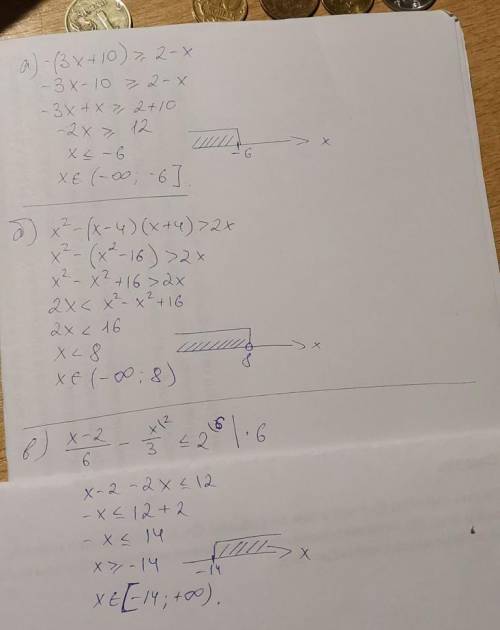 а) -(3x+10) ≥ 2-x
-3x-10 ≥ 2-x
-3x+x ≥ 2+10
-2x ≥ 12
x ≤ -6
-6 x
x∈(-∞; -6].
б) x²-(x-4)(x+4)>2x
x²-(x²-16)>2x
x²-x²+16>2x
2x< x²-x²+16
2x<16
x<8
8 x
x∈(-∞; 8)
в) (x-2)/6 - x\²/3 ≤ 2\⁶ |·6
x-2-2x≤12
-x≤12+2
-x≤ 14
x≥-14
-14 x
x∈[-14; +∞).